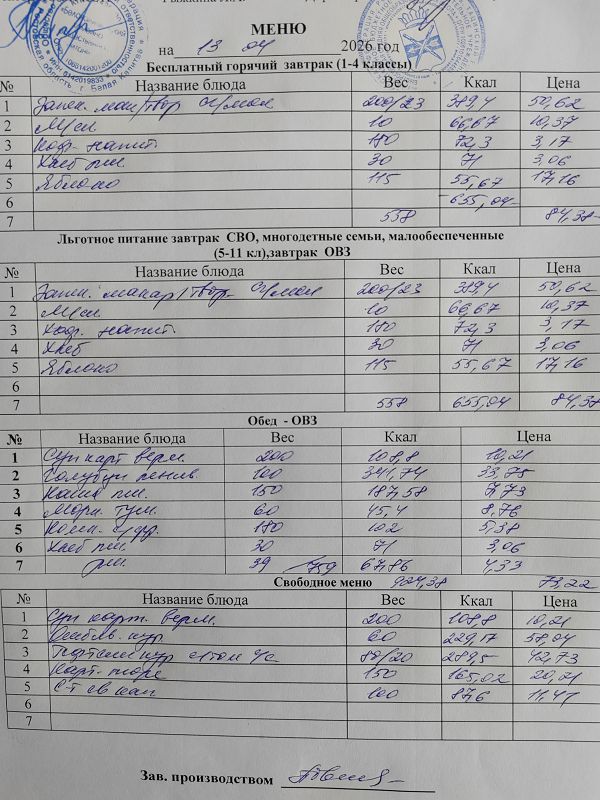 МЕНЮ
на 13 04 2026 год
Бесплатный горячий завтрак (1-4 классы)
№ Название блюда Вес Ккал Цена
1 Запек. мак/твор сг/мол 200/23 389,4 50,62
2 М/сл 10 66,67 10,37
3 Коф. напит. 180 72,3 3,17
4 Хлеб пш. 30 71 3,06
5 Яблоко 115 55,67 17,16
6 655,04
7 558 84,38
Льготное питание завтрак СВО, многодетные семьи, малообеспеченные
(5-11 кл),завтрак ОВЗ
№ Название блюда Вес Ккал Цена
1 Запек. макар/твор. сг/мол 200/23 389,4 50,62
2 М/сл 10 66,67 10,37
3 Коф. напит. 180 72,3 3,17
4 Хлеб 30 71 3,06
5 Яблоко 115 55,67 17,16
6
7 558 655,04 84,38
Обед - ОВЗ
№ Название блюда Вес Ккал Цена
1 Суп карт верм. 200 108,8 10,21
2 Голубцы ленив. 100 341,74 33,75
3 Каша пш. 150 187,58 7,73
4 Морк. туш. 60 45,4 8,76
5 Комп. с/фр. 180 102 5,38
6 Хлеб пш. 30 71 3,06
7 рж. 39 759 67,86 4,33
Свободное меню 924,38 73,22
№ Название блюда Вес Ккал Цена
1 Суп карт. верм. 200 108,8 10,21
2 кур 60 229,17 58,04
3 кур 80/20 289,5 42,73
4 Карт. пюре 150 165,02 20,21
5 С-т св кап 100 87,6 11,47
6
7
Зав. производством